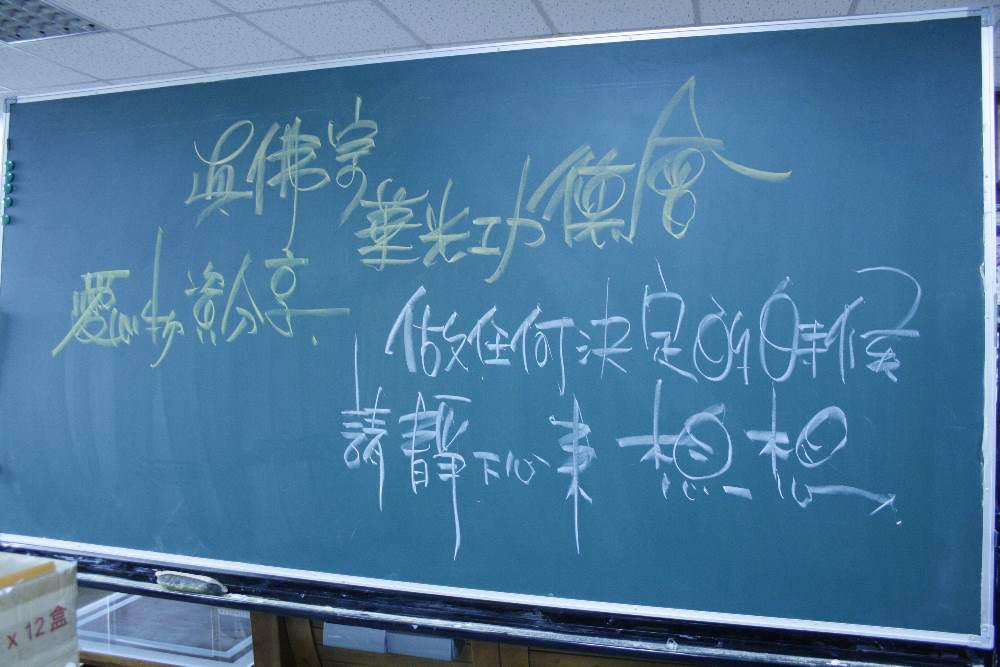 真佛宗
華光功德會
愛心物資分享
做任何決定的時候
請靜下心來想想
x 12盒